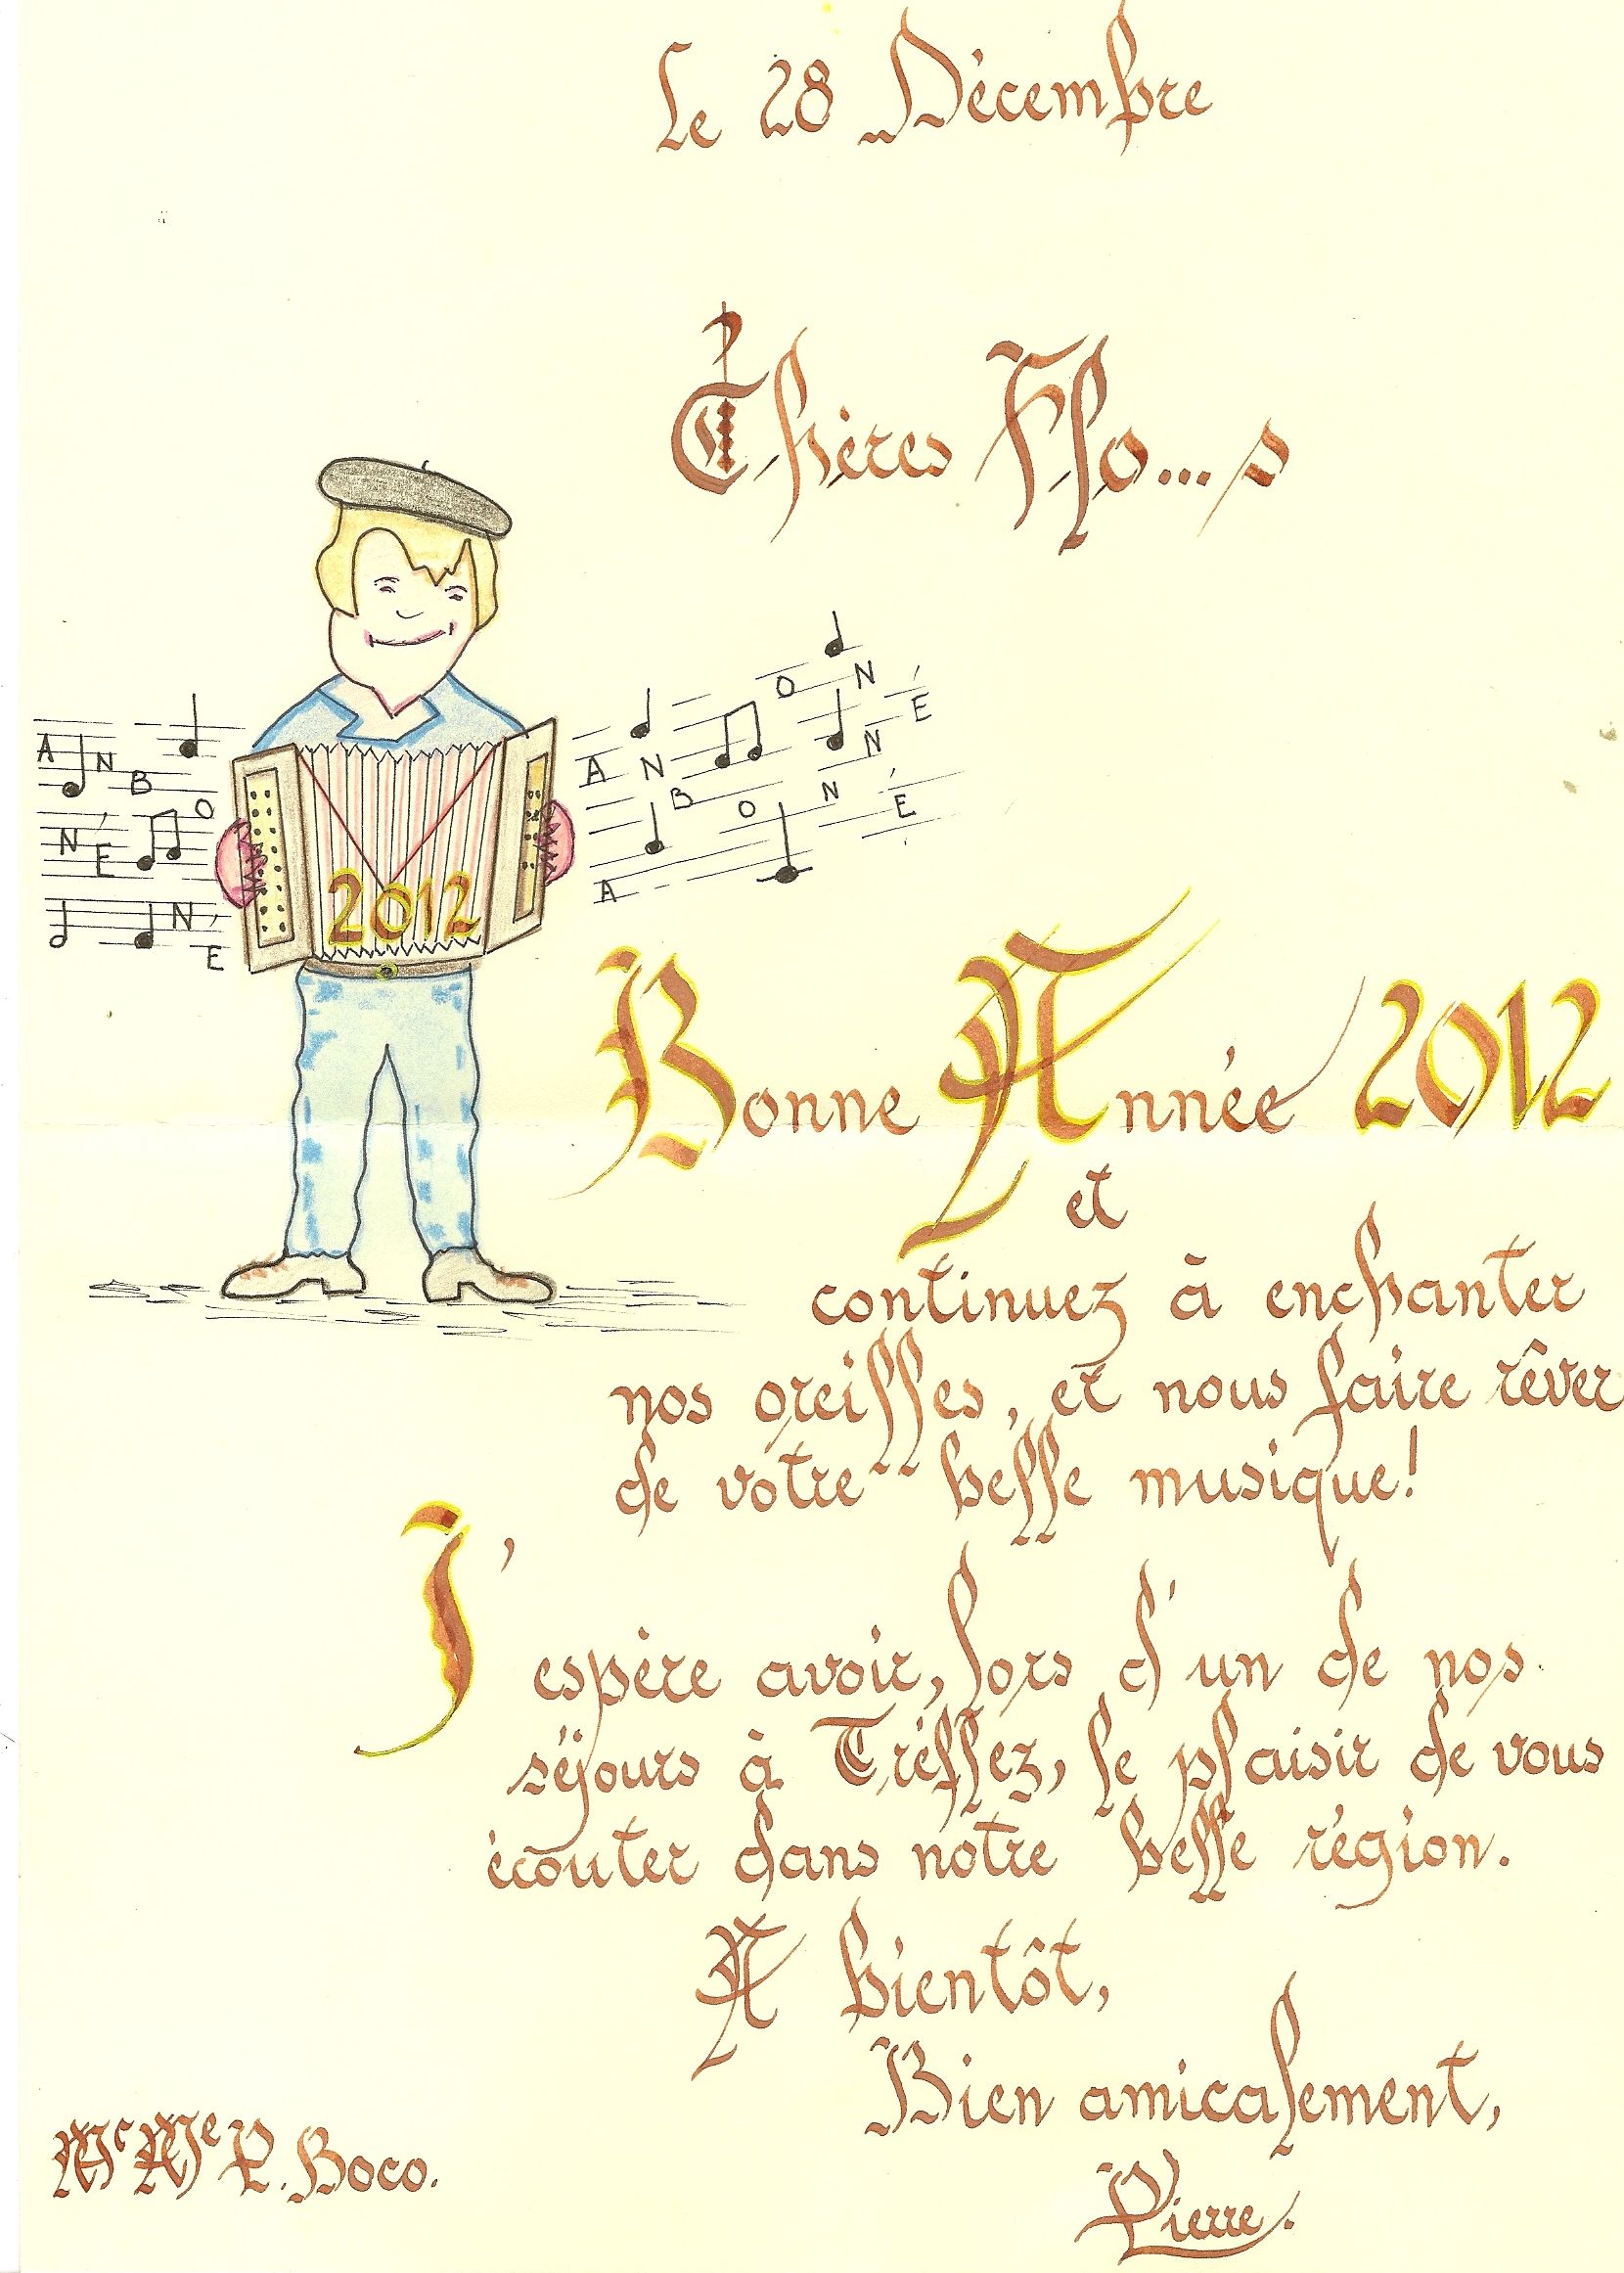 Le 28 Décembre
Chères Flo...s
A N B O
N É
N É
A N N É
B O N N É
A
O N É
2012
Bonne Année 2012
et
continuez à enchanter
nos oreilles, et nous faire rêver
de votre belle musique!
J'espère avoir, lors d'un de nos
séjours à Tréflez, le plaisir de vous
écouter dans notre belle région.
A bientôt,
Bien amicalement,
Pierre.
P. Boco.